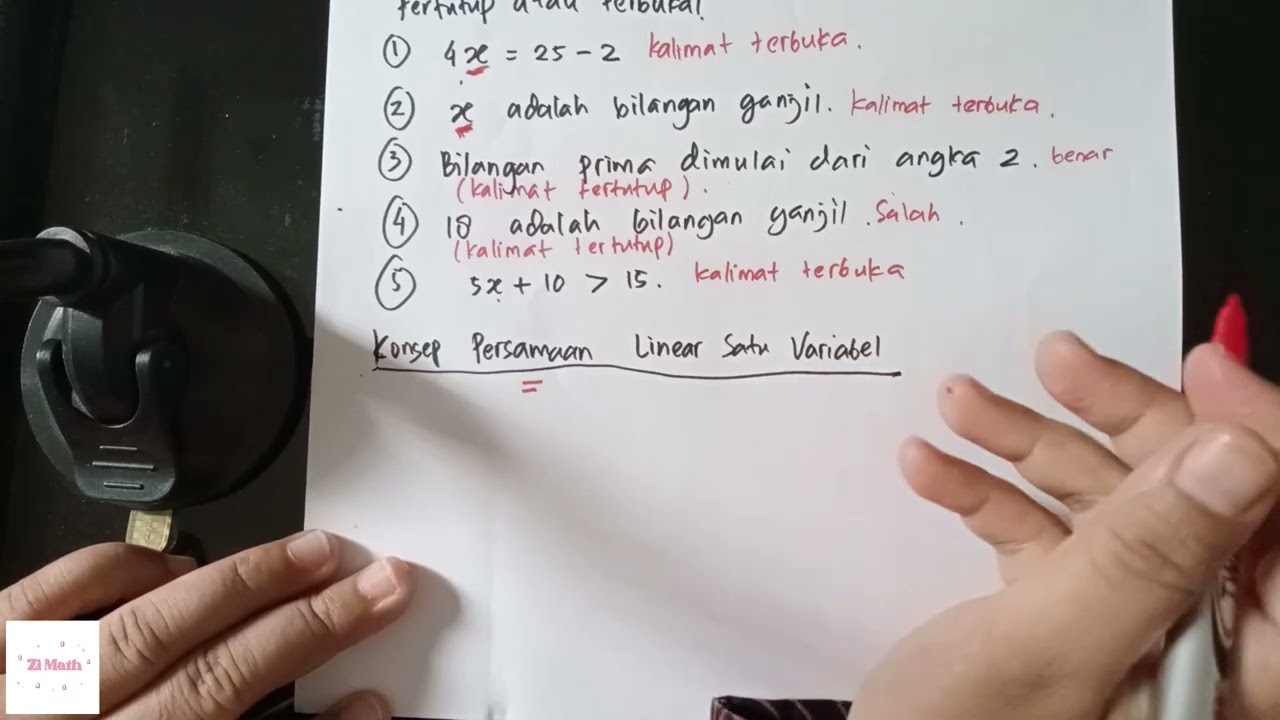 tertutup atau terbuka!
① 4x = 25 - 2 kalimat terbuka.
② x adalah bilangan ganjil. kalimat terbuka.
③ Bilangan prima dimulai dari angka 2. benar
(kalimat tertutup).
④ 18 adalah bilangan ganjil. Salah.
(kalimat tertutup)
⑤ 5x + 10 > 15. kalimat terbuka
Konsep Persamaan Linear Satu Variabel
=
Zi Math